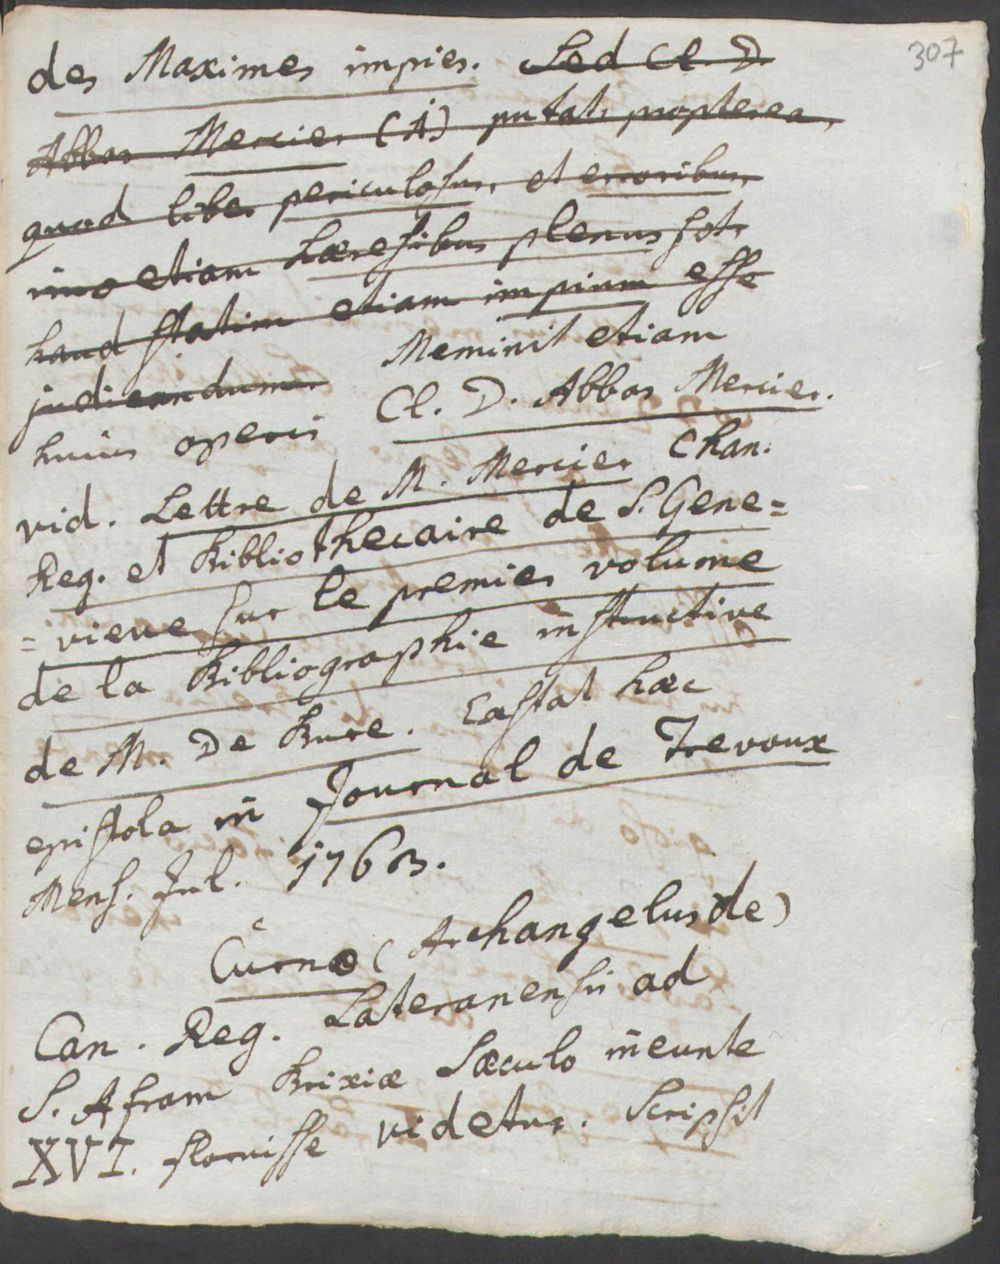 307
des Maximes impies. Sed Cl. D.
Abbas Mercier (A) putat, propterea,
quod liber periculosus, et erroribus,
imo etiam hæresibus plenus sit,
haud statim etiam impium esse
judicandum. Meminit etiam
huius operis Cl. D. Abbas Mercier.
vid. Lettre de M. Mercier Chan.
Reg. et Bibliothecaire de S. Gene=
=vieve sur le premier volume
de la Bibliographie instructive
de M. De Bure. Exstat hæc
epistola in Journal de Trevoux
Mens. Jul. 1763.
Curnæ (Archangelus de)
Can. Reg. Lateranensis ad
S. Afram Brixiæ Sæculo ineunte
XVI. floruisse videtur. Scripsit